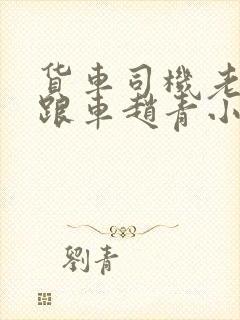 货車司機老
跟車趙青小
劉青